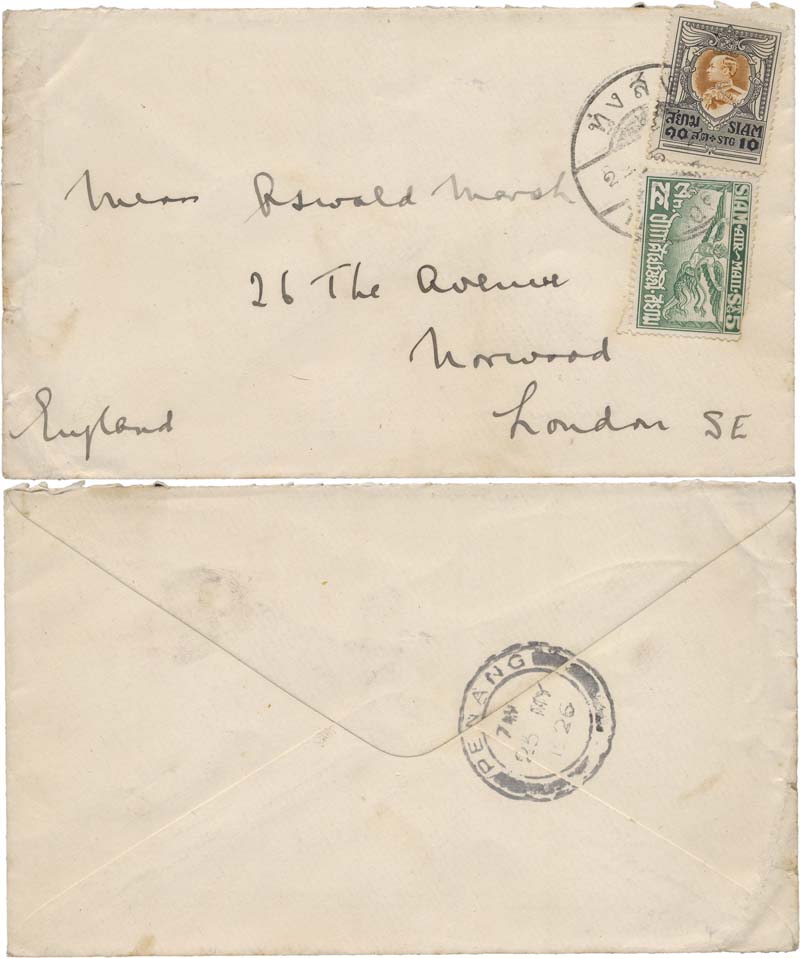 Messrs Oswald Marsh
26 The Avenue
Norwood
London SE
England
ทุ่งส
สยาม SIAM
๑๐ สต STG 10
SIAM·AIR·MAIL·Stg 5
PENANG
7 AM
25 MY
1926